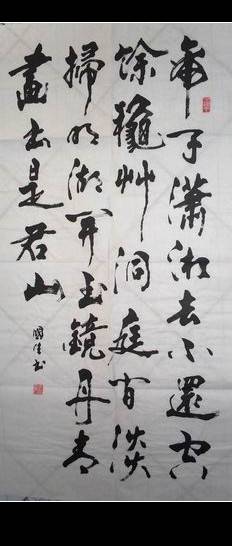 帝子瀟湘去不還空
餘穐艸洞庭间淡
掃明湖开玉鏡丹青
畫出是君山
國书